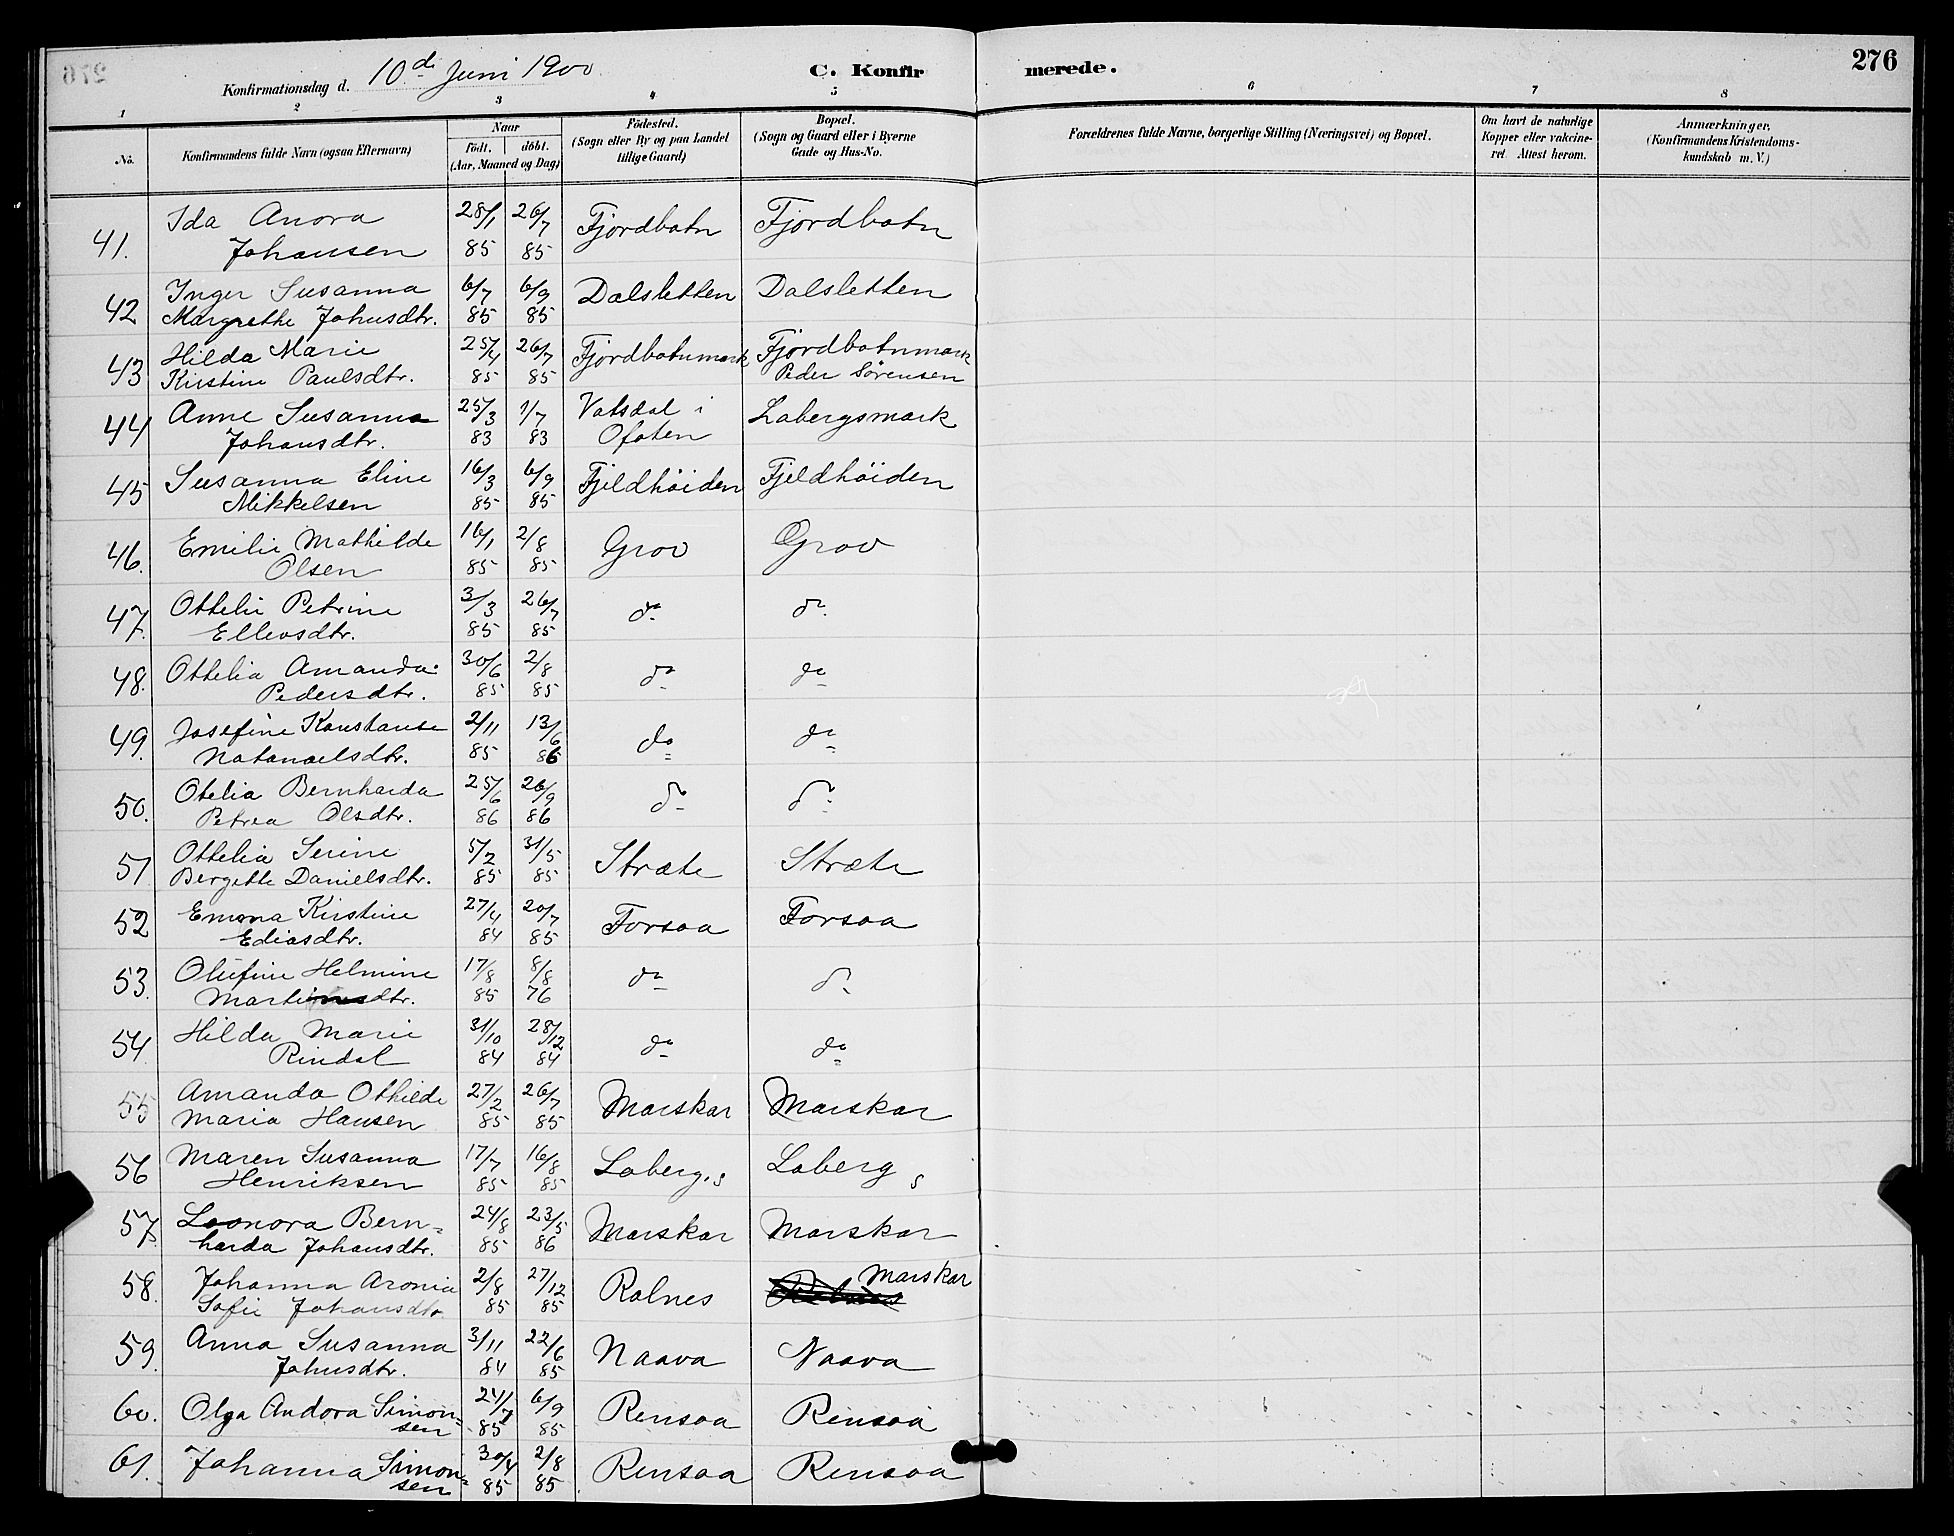 276
Konfirmationsdag d. 10de Juni 1900
C. Konfir merede.
1 2 3 4 5 6 7 8
No.
Konfirmandens fulde Navn (ogsaa Efternavn)
Naar
födt. döbt.
(Aar, Maaned og Dag)
Födested.
(Sogn eller By og paa Landet
tillige Gaard)
Bopæl.
(Sogn og Gaard eller i Byerne
Gade og Hus-No.
Forældrenes fulde Navne, borgerlige Stilling (Næringsvei) og Bopæl.
Om havt de naturlige
Kopper eller vakcine-
ret. Attest herom.
Anmærkninger.
(Konfirmandens Kristendoms-
kundskab m. V.)
41. Ida Anora 28/1 26/7 Fjordbotn Fjordbotn
Johansen 85 85
42 Inger Susanna 6/7 6/9 Dalsletten Dalsletten
Margrethe Johnsdtr. 85 85
43 Hilda Marie 25/4 26/7 Fjordbotnmark Fjordbotnmark
Kirstine Paulsdtr. 85 85 Peder Sörensen
44 Anne Susanna 25/3 1/7 Vatsdal i Labergsmark
Johansdtr. 83 83 Ofoten
45 Susanna Eline 16/3 6/9 Fjeldhöiden Fjeldhöiden
Mikkelsen 85 85
46. Emilie Mathilde 16/1 2/8 Grov Grov
Olsen 85 85
47. Ottelie Petrine 3/3 26/7 do do
Ellevsdtr. 85 85
48. Ottelia Amanda 30/6 2/8 do do
Pedersdtr. 85 85
49. Josefine Konstanse 2/11 13/6 do do
Natanaelsdtr. 85 86
50. Otelia Bernharda 25/6 26/9 do do
Petrea Olsdtr. 86 86
51 Ottelia Serine 5/2 31/5 Stræte Stræte
Bergette Danielsdtr. 85 85
52 Emma Kirstine 27/4 20/7 Forsaa Forsaa
Ediasdtr. 84 85
53. Olufine Helmine 17/8 8/8 do do
Martinsdtr. 85 76
54. Hilda Marie 31/10 28/12 do do
Rindal 84 84
55 Amanda Othilde 27/2 26/7 Marskar Marskar
Maria Hansen 85 85
56 Maren Susanna 17/7 16/8 Labergs Labergs
Henriksen 85 85
57. Leonora Bern= 24/8 23/5 Marskar Marskar
harda Johansdtr. 85 86
58. Johanna Aronia 2/8 27/12 Rolnes Marskar
Sofie Johansdtr 85 85
59. Anna Susanna 3/11 22/6 Naava Naava
Johnsdtr. 84 85
60. Olga Andora Simon= 24/7 6/9 Rensaa Rensaa
sen 85 85
61. Johanna Simon= 30/4 2/8 Rensaa Rensaa
sen 85 85